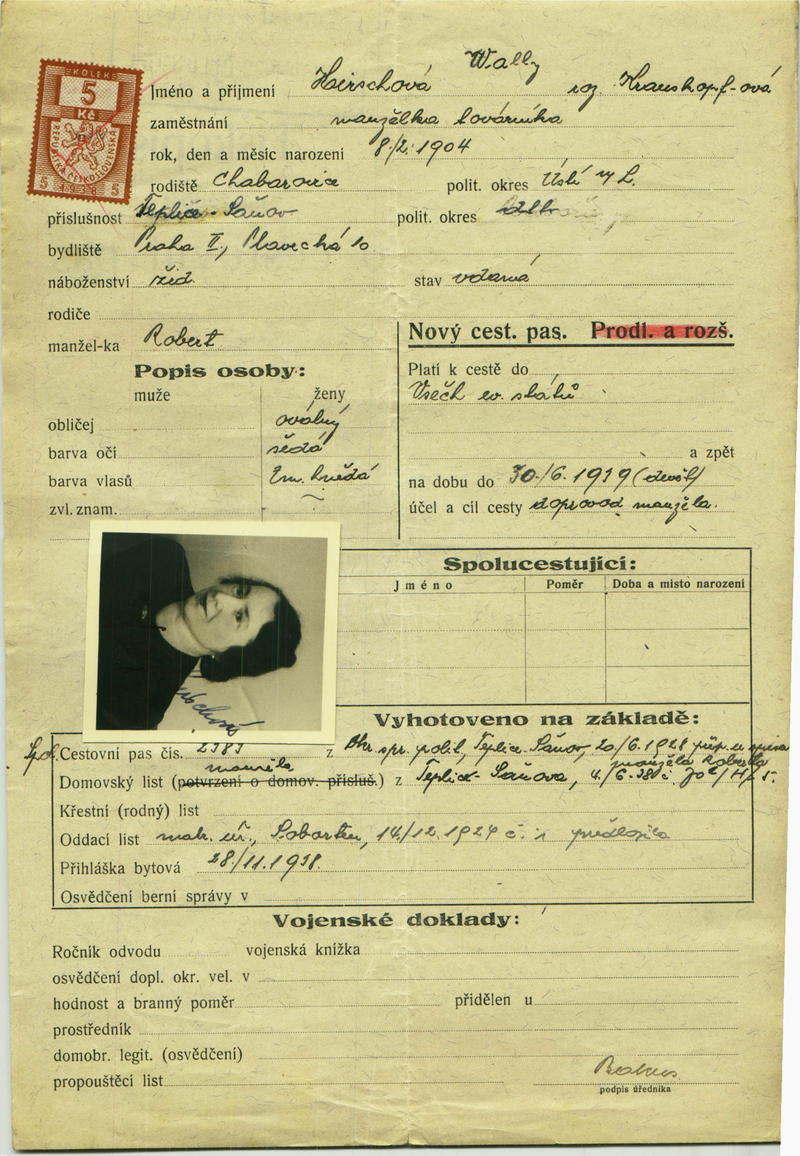 KOLEK
5
Kč
REPUBLIKA ČESKOSLOVENSKÁ
5 1938 5
Jméno a příjmení Hirschová Wally roz.
zaměstnání manželka továrníka
rok, den a měsíc narození 8/2. 1904
rodiště Chabařovice polit. okres Ústí n/L.
příslušnost Teplice-Šanov polit. okres
bydliště Praha II., Plavecká 10
náboženství žid. stav vdaná
rodiče
manžel-ka Robert
Nový cest. pas. Prodl. a rozš.
Popis osoby:
muže ženy
obličej oválný
barva očí šedá
barva vlasů tm. hnědá
zvl. znam. ~
Platí k cestě do
Všech ev. států
a zpět
na dobu do 30/6. 1939
účel a cíl cesty doprovod manžela.
Spolucestující:
Jméno Poměr Doba a místo narození
Vyhotoveno na základě:
Cestovní pas čís. z Okr. spr. polit, Teplice-Šanov, 20/6. 1928
manžela manžela Roberta
Domovský list (potvrzení o domov. přísluš.) z Teplice-Šanova, 4./6.38 č.
Křestní (rodný) list
Oddací list mat. úř., 14/12. 1924 č. 1 předložila
Přihláška bytová 28/11. 1938.
Osvědčení berní správy v
Vojenské doklady:
Ročník odvodu vojenská knížka
osvědčení dopl. okr. vel. v
hodnost a branný poměr přidělen u
prostředník
domobr. legit. (osvědčení)
propouštěcí list
podpis úředníka